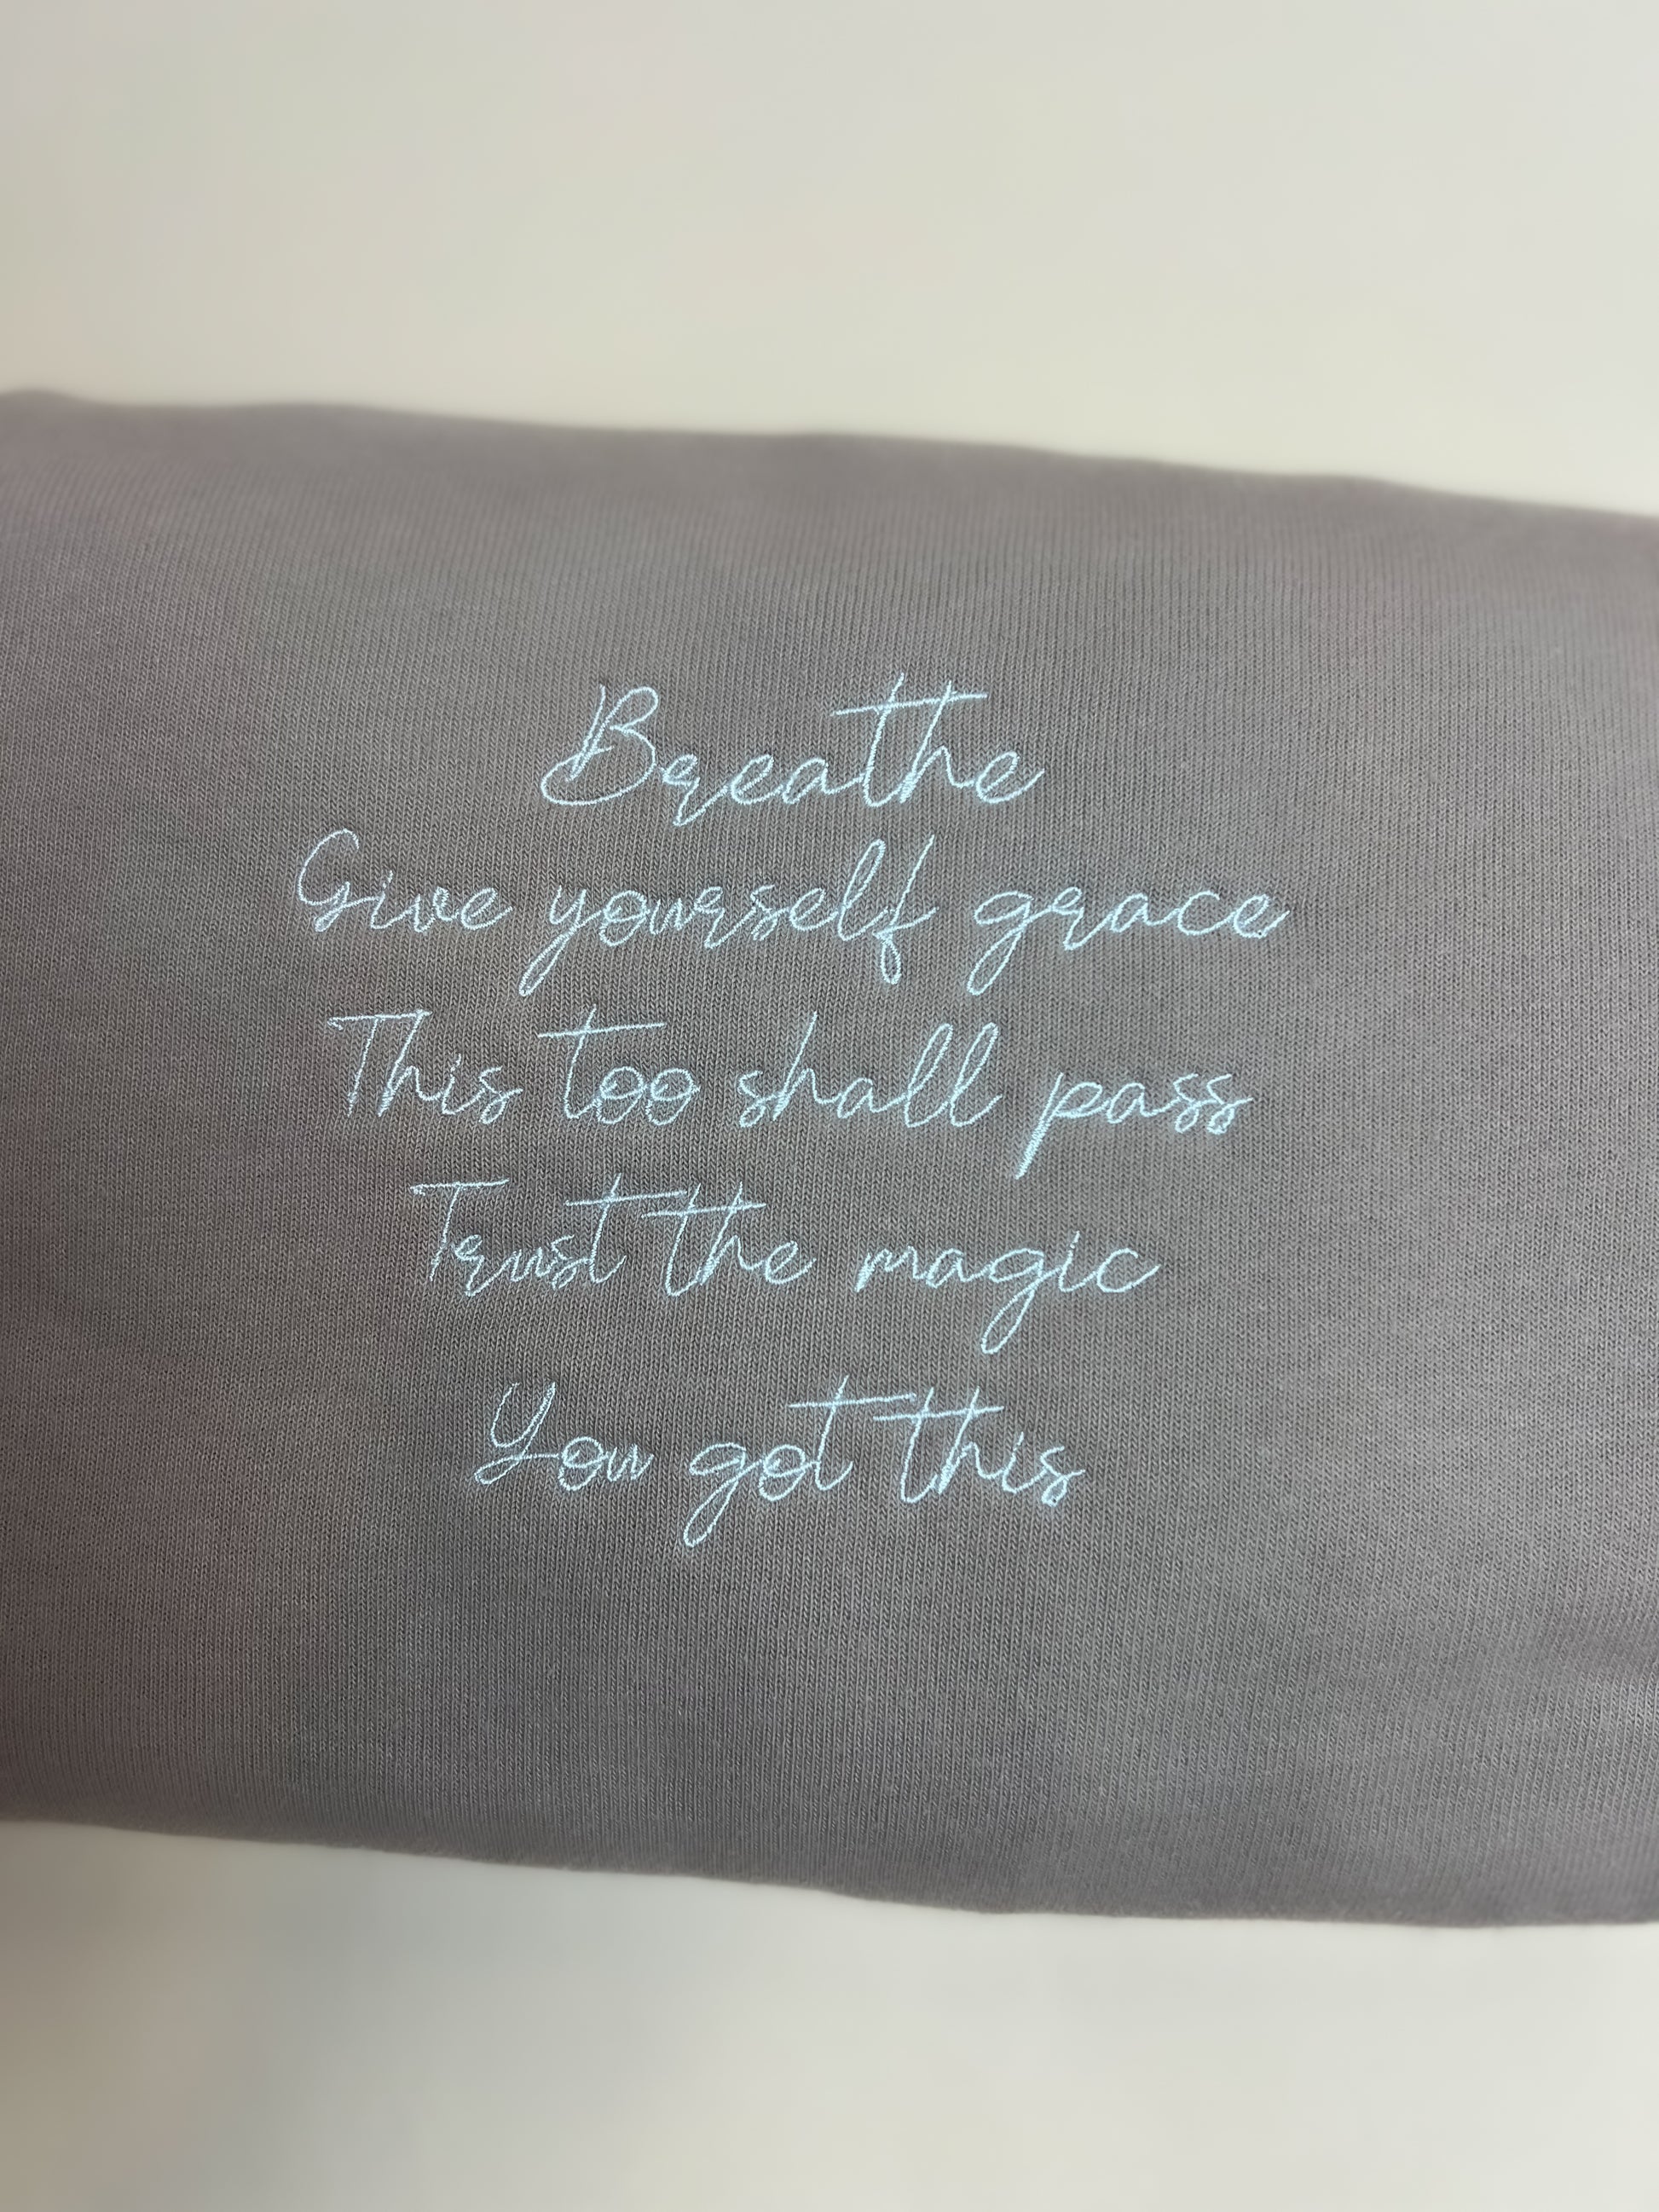 Breathe
Give yourself grace
This too shall pass
Trust the magic
You got this